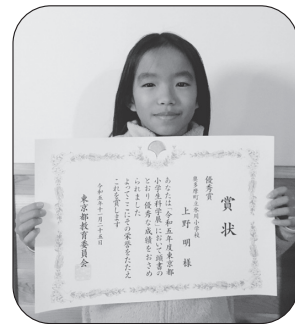 賞状
優秀賞
奥多摩町立氷川小学校
上野 明 様
あなたは「令和五年度東京都
小学生科学展」において頭書の
とおり優秀な成績をおさめ
られました
よってここにその栄誉をたたえ
これを賞します
令和五年十一月二十五日
東京都教育委員会